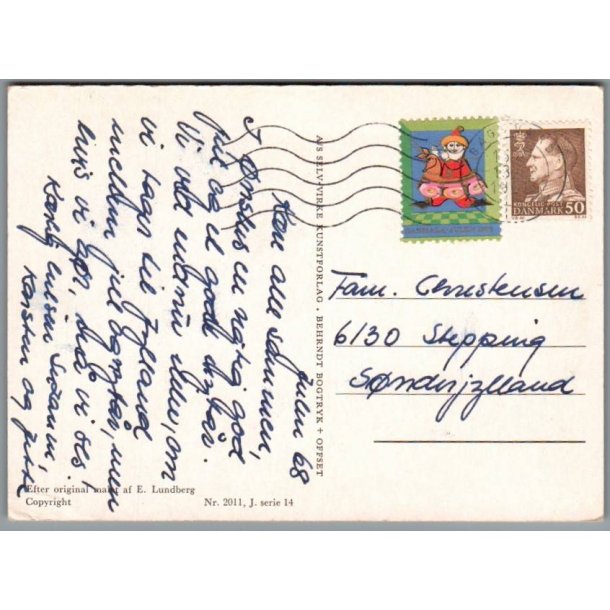 Julen 68
Kære alle sammen,
I Ønskes en rigtig god
jul og et godt nytår.
Vi ved endnu ikke, om
vi tager til Jylland
mellem jul og nytår, men
hvis vi gør, skal vi ses!
Kærlig hilsen Susanne,
Karsten og
A/S SELV-VIRKE KUNSTFORLAG . BEHRNDT BOGTRYK + OFFSET
KONGELIG POST
DANMARK 50
Fam. Christensen
6130 Stepping
Sønderjylland
Efter original malet af E. Lundberg
Copyright
Nr. 2011, J. serie 14